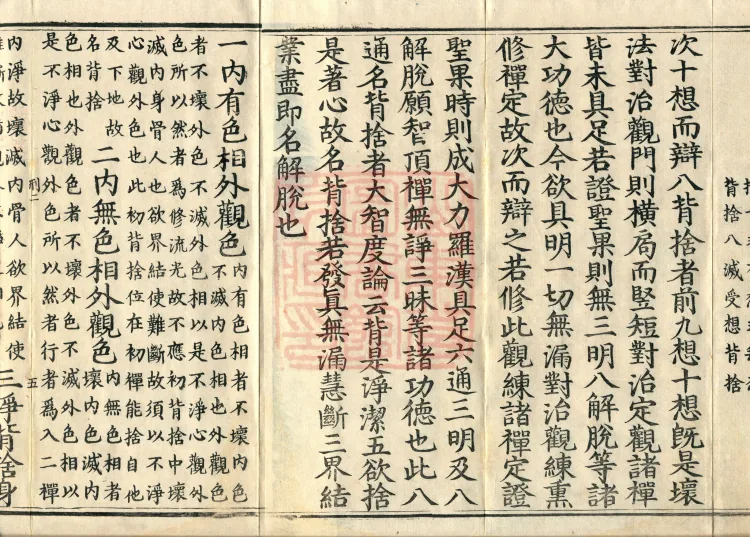 背捨八滅受想背捨
次十想而辯八背捨者前九想十想旣是壞
法對治觀門則橫局而竪短對治定觀諸禪
皆未具足若證聖果則無三明八解脫等諸
大功德也今欲具明一切無漏對治觀練熏
修禪定故次而辯之若修此觀練諸禪定證
聖果時則成大力羅漢具足六通三明及八
解脫願智頂禪無諍三昧等諸功德也此八
通名背捨者大智度論云背是淨潔五欲捨
是著心故名背捨若發眞無漏慧斷三界結
業盡即名解脫也
一內有色相外觀色 內有色相者不壞內色
不滅內色相也外觀色
者不壞外色不滅外色相以是不淨心觀外
色所以然者爲修流光故不應初背捨中壞
滅內身骨人也欲界結使難斷故須以不淨
心觀外色也此初背捨位在初禪能捨自他
及下地故
名背捨 二內無色相外觀色 內無色相者
壞內色滅內
色相也外觀色者不壞外色不滅外色相以
是不淨心觀外色所以然者行者爲入二禪
刑二 五
內淨故壞滅內骨人欲界結使
三淨背捨身